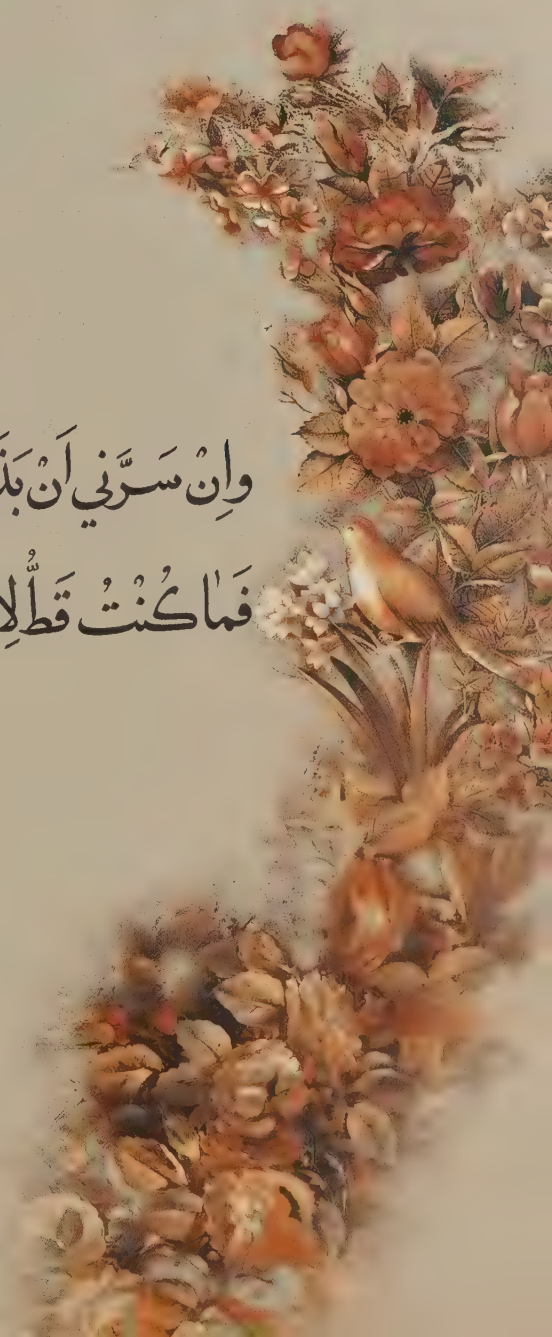 وَاِنْ سَرَّني اَنْ
فَمٰا كُنْتُ قَطُّ